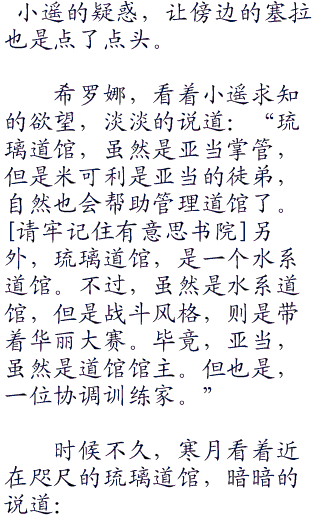 小遥的疑惑，让傍边的塞拉
也是点了点头。
希罗娜，看着小遥求知
的欲望，淡淡的说道：“琉
璃道馆，虽然是亚当掌管，
但是米可利是亚当的徒弟，
自然也会帮助管理道馆了。
[请牢记住有意思书院]另
外，琉璃道馆，是一个水系
道馆。不过，虽然是水系道
馆，但是战斗风格，则是带
着华丽大赛。毕竟，亚当，
虽然是道馆馆主。但也是，
一位协调训练家。”
时候不久，寒月看着近
在咫尺的琉璃道馆，暗暗的
说道：